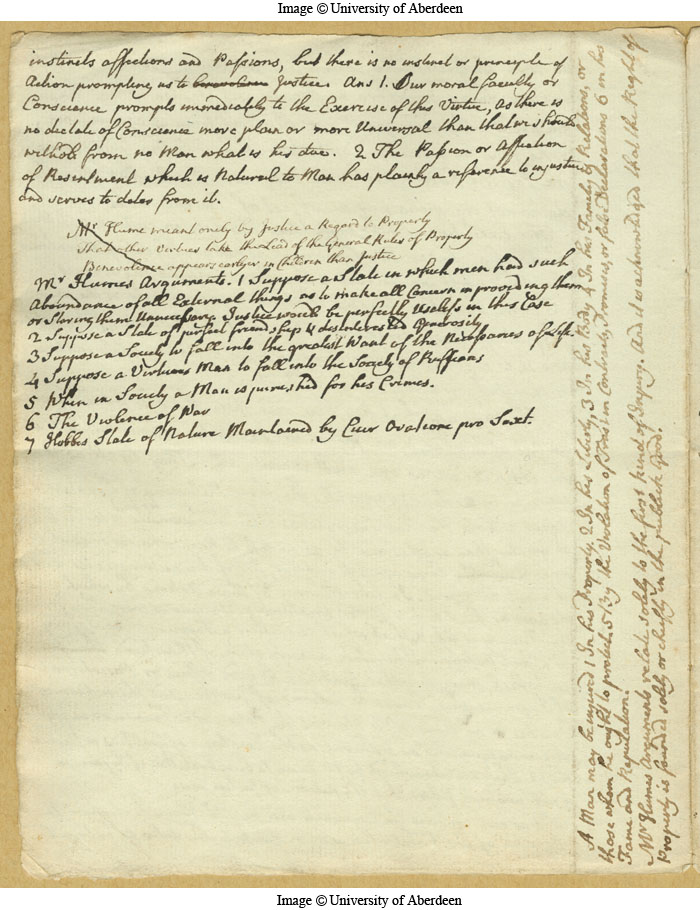 Image © University of Aberdeen
instincts affections and Passions, but there is no instinct or principle of
Action prompting us to benevolence Justice. Ans 1. Our moral faculty or
Conscience prompts immediately to the Exercise of this Virtue, as there is
no dictate of Conscience more plain or more Universal than that we should
withold from no Man what is his due. 2 The Passion or Affection
of Resentment which is Natural to Man has plainly a reference to injustice
and serves to deter from it.
Mr Hume meant onely by Justice a Regard to Property
That other Virtues take the Lead of the General Rules of Property
Benevolence appears earlyer in Children than Justice
Mr Humes Arguments. 1 Suppose a State in which men had such
Abundance of all External things as to make all Concern in providing them
or Storing them Unnecessary Justice would be perfectly Useless in this Case
2 Suppose a State of perfect friendship & disinterested Generosity
3 Suppose a Society to fall into the greatest Want of the Necessaries of Life.
4 Suppose a Virtuous Man to fall into the Society of Ruffians
5 When in Society a Man is punished for his Crimes.
6 The Violence of War
7 Hobbes State of Nature Maintained by Cicer Oratione pro Sext.
A Man may be injured 1 In his Property. 2 In his Liberty, 3 In his Body, 4 In his Family, Relations, or
those whom he ought to protect, 5 By the Violation of Trust in Contracts, Promises, or false Declarations 6 in his
Fame and Reputation.
Mr Humes Arguments relate solely to the first kind of Injury. And it is acknowledged that the Right of
Property is founded solely or chiefly in the publick Good.
Image © University of Aberdeen